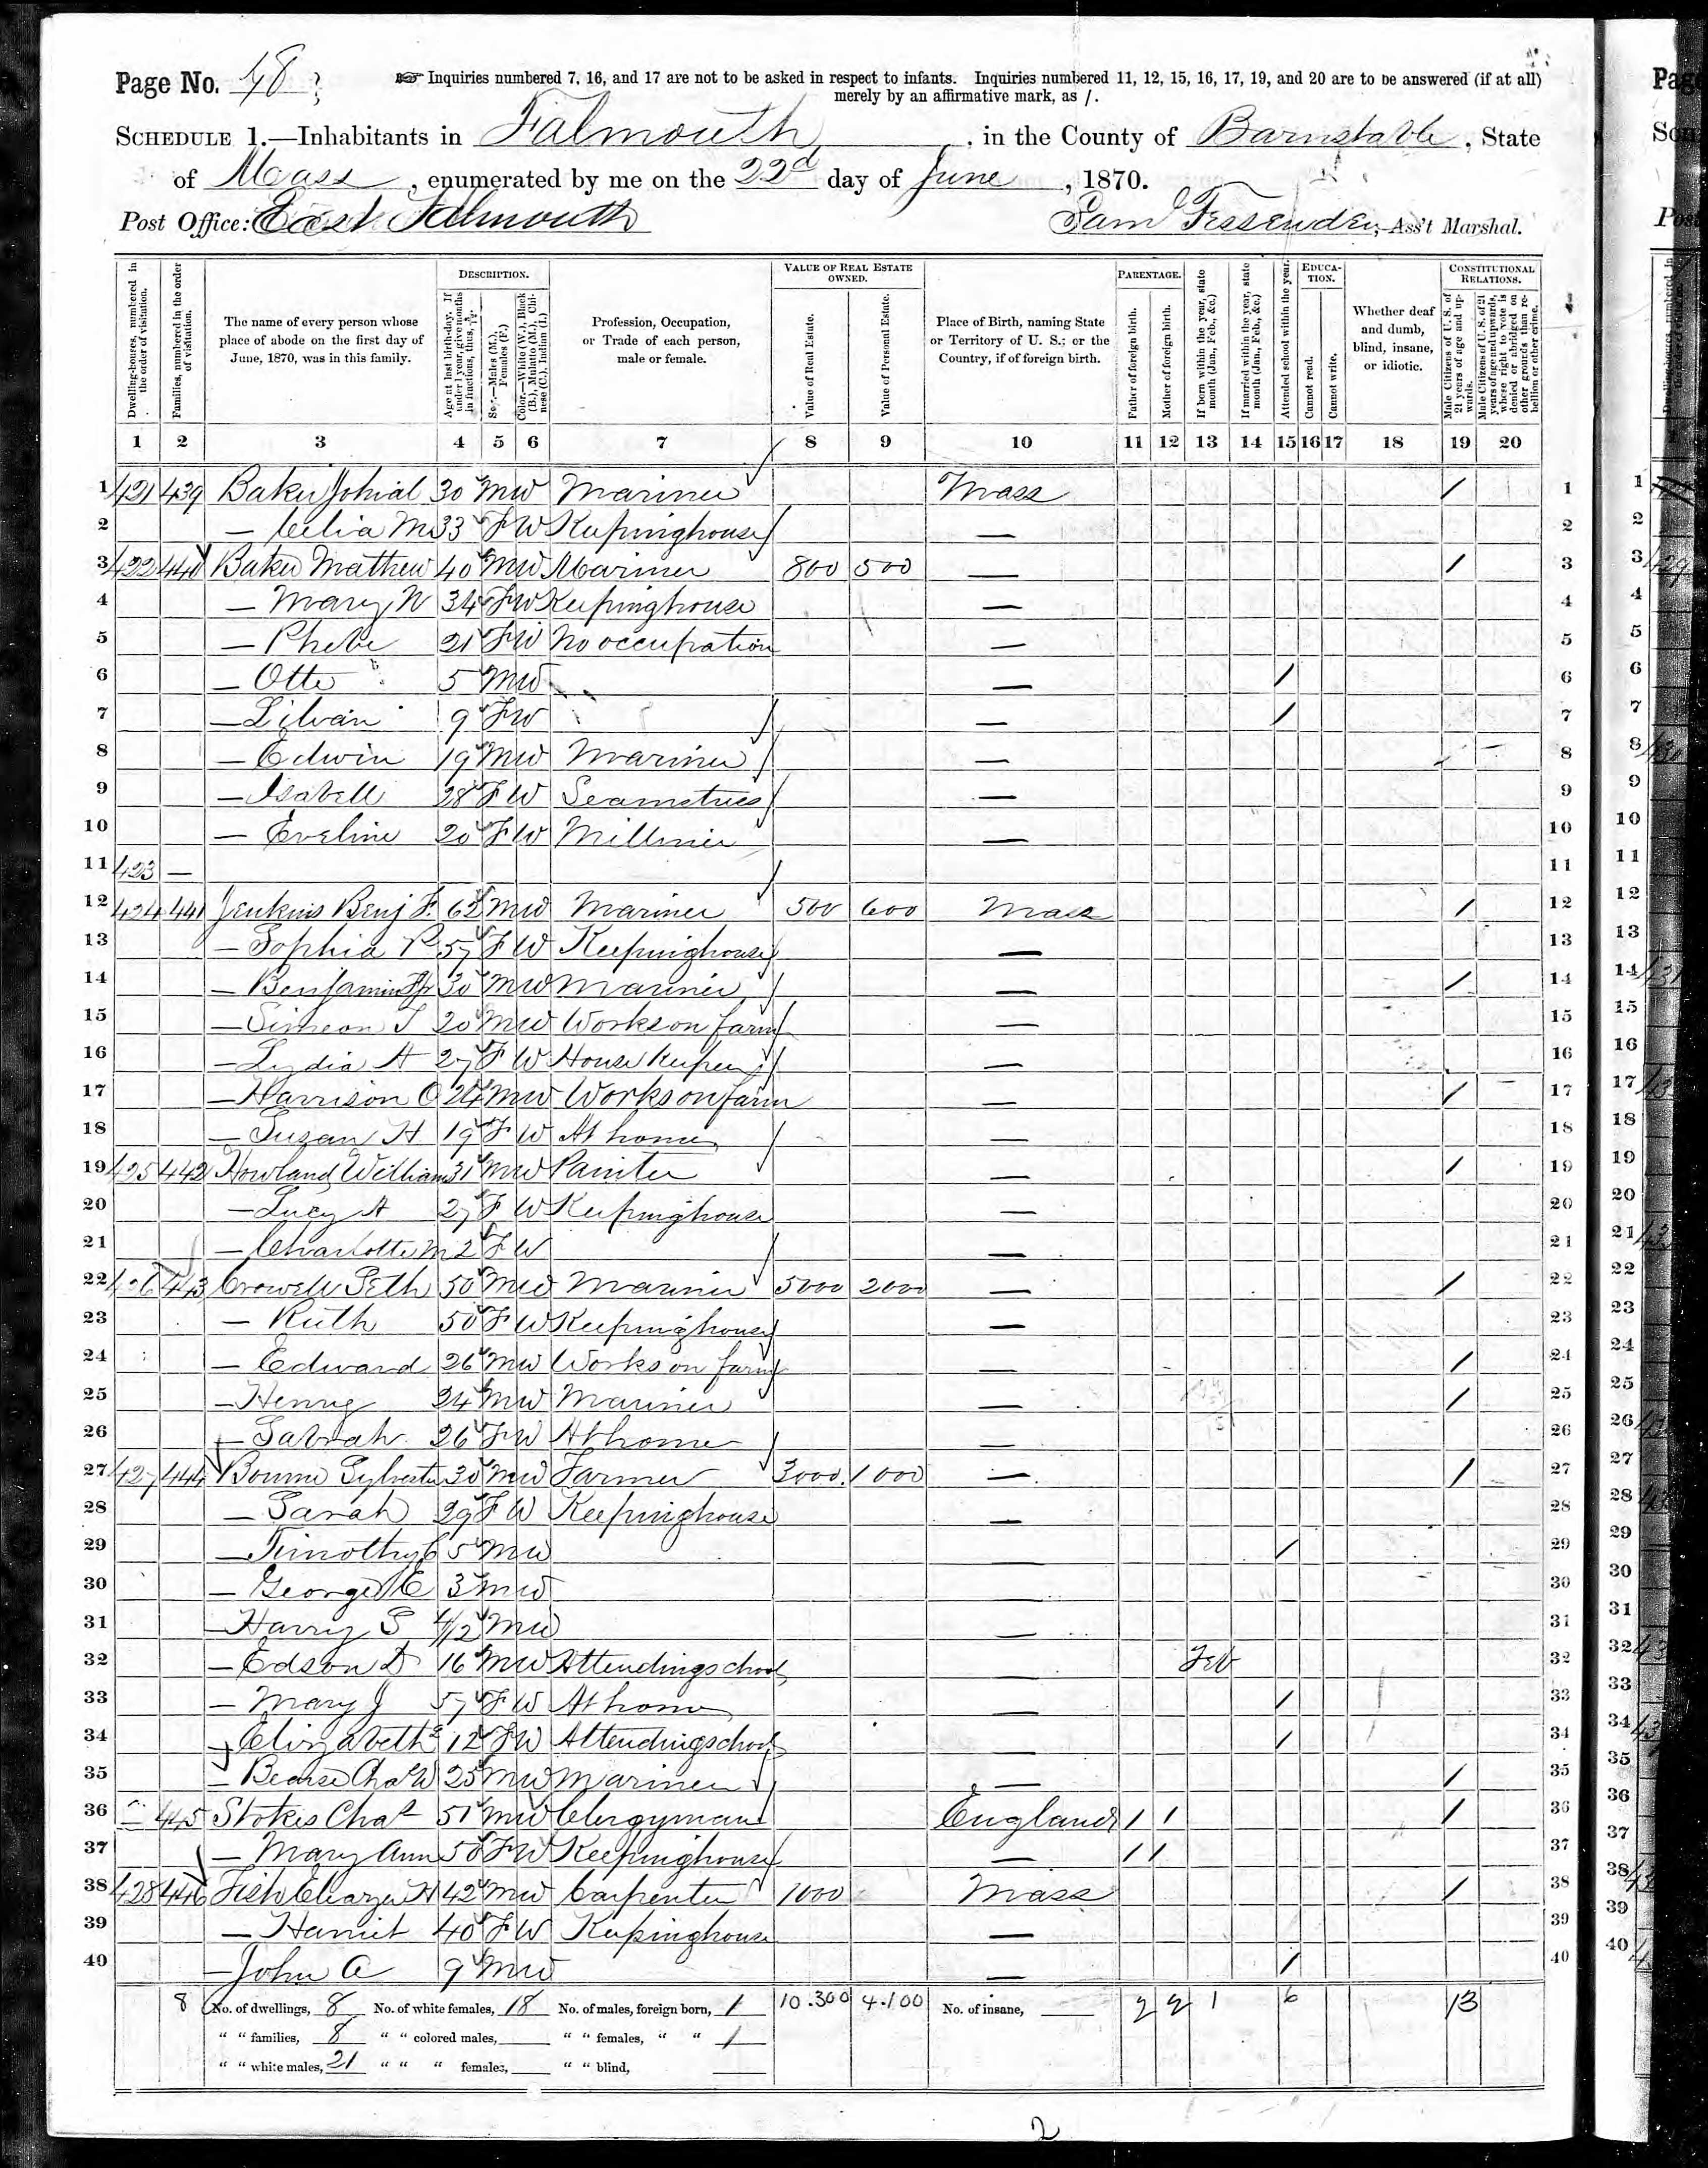 Page No. 48
☞ Inquiries numbered 7, 16, and 17 are not to be asked in respect to infants. Inquiries numbered 11, 12, 15, 16, 17, 19, and 20 are to be answered (if at all)
merely by an affirmative mark, as /.
SCHEDULE 1.—Inhabitants in Falmouth, in the County of Barnstable, State
of Mass, enumerated by me on the 22d day of June, 1870.
Post Office: East Falmouth Sam Fessenden, Ass't Marshal.
Dwelling-houses, numbered in the order of visitation.
Families, numbered in the order of visitation.
The name of every person whose place of abode on the first day of June, 1870, was in this family.
DESCRIPTION.
Age at last birth-day. If under 1 year, give months in fractions, thus, 3/12.
Sex.—Males (M.), Females (F.)
Color.—White (W.), Black (B.), Mulatto (M.), Chinese (C.), Indian (I.)
Profession, Occupation, or Trade of each person, male or female.
VALUE OF REAL ESTATE OWNED.
Value of Real Estate.
Value of Personal Estate.
Place of Birth, naming State or Territory of U. S.; or the Country, if of foreign birth.
PARENTAGE.
Father of foreign birth.
Mother of foreign birth.
If born within the year, state month (Jan., Feb., &c.)
If married within the year, state month (Jan., Feb., &c.)
Attended school within the year.
EDUCATION.
Cannot read.
Cannot write.
Whether deaf and dumb, blind, insane, or idiotic.
CONSTITUTIONAL RELATIONS.
Male Citizens of U. S. of 21 years of age and upwards.
Male Citizens of U. S. of 21 years of age and upwards, where right to vote is denied or abridged on other grounds than rebellion or other crime.
1 2 3 4 5 6 7 8 9 10 11 12 13 14 15 16 17 18 19 20
1 421 439 Baker 30 M W Mariner Mass / 1
2 — Celia M 33 F W Keepinghouse — 2
3 422 440 Baker Mathew 40 M W Mariner 800 500 — / 3
4 — Mary N 34 F W Keepinghouse — 4
5 — Phebe 21 F W No occupation — 5
6 — Otto 5 M W — / 6
7 — 9 F W — / 7
8 — Edwin 19 M W Mariner — 8
9 — Isabell 28 F W Seamstress — 9
10 — Eveline 20 F W Milliner — 10
11 423 — 11
12 424 441 Jenkins Benj F. 62 M W Mariner 500 600 Mass / 12
13 — Sophia P 57 F W Keepinghouse — 13
14 — Benjamin F Jr 30 M W Mariner — / 14
15 — Simeon T 20 M W Works on farm — 15
16 — Lydia A 27 F W House Keeper — 16
17 — Harrison O 24 M W Works on farm — / 17
18 — Susan H 19 F W At home — 18
19 425 442 Howland William 31 M W Painter — / 19
20 — Lucy A 27 F W Keepinghouse — 20
21 — Charlotte M 2 F W — 21
22 426 443 Crowell Seth 50 M W Mariner 5000 2000 — / 22
23 — Ruth 50 F W Keepinghouse — 23
24 — Edward 26 M W Works on farm — / 24
25 — Henry 24 M W Mariner — / 25
26 — Sabrah 26 F W At home — 26
27 427 444 Bourne Sylvester 30 M W Farmer 3000 1000 — / 27
28 — Sarah 29 F W Keepinghouse — 28
29 — Timothy C 5 M W — / 29
30 — George E 3 M W — 30
31 — Harry S 4/12 M W — 31
32 — Edson D 16 M W Attending school — Feb 32
33 — Mary J 57 F W At home — / 33
34 — Elizabeth 12 F W Attending school — / 34
35 — Bearse Chas W 25 M W Mariner — / 35
36 — 445 Stokes Chas 51 M W Clergyman England / / / 36
37 — Mary Ann 50 F W Keepinghouse — / / 37
38 428 446 Fish Eleazer H 42 M W Carpenter 1000 Mass / 38
39 — Harriet 40 F W Keepinghouse — 39
40 — John A 9 M W — / 40
8 No. of dwellings, 8 No. of white females, 18 No. of males, foreign born, 1 10.300 4.100 No. of insane, 2 2 1 6 13
" " families, 8 " " colored males, " " females, " " 1
" " white males, 21 " " " females, " " blind,
2